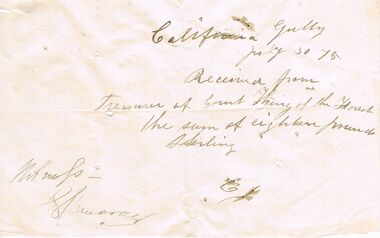 California Gully
July 30 75
Received from
Treasurer of Court King of the Forest
the sum of eighteen pounds
Sterling